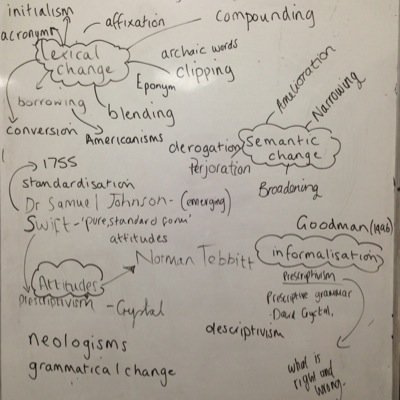 initialism
affixation
compounding
acronymn
lexical change
archaic words
clipping
Eponym
borrowing
blending
conversion
Americanisms
Amelioration
Narrowing
derogation
Semantic change
Perjoration
Broadening
1755
standardisation
Dr Samuel Johnson - (emerging)
Swift - 'pure, standard form'
attitudes
Goodman (1996)
informalisation
Norman Tebbitt
Attitudes
prescriptivism - Crystal
Prescriptivism
Prescriptive grammar
- David Crystal.
descriptivism
neologisms
grammatical change
what is
right and
wrong.